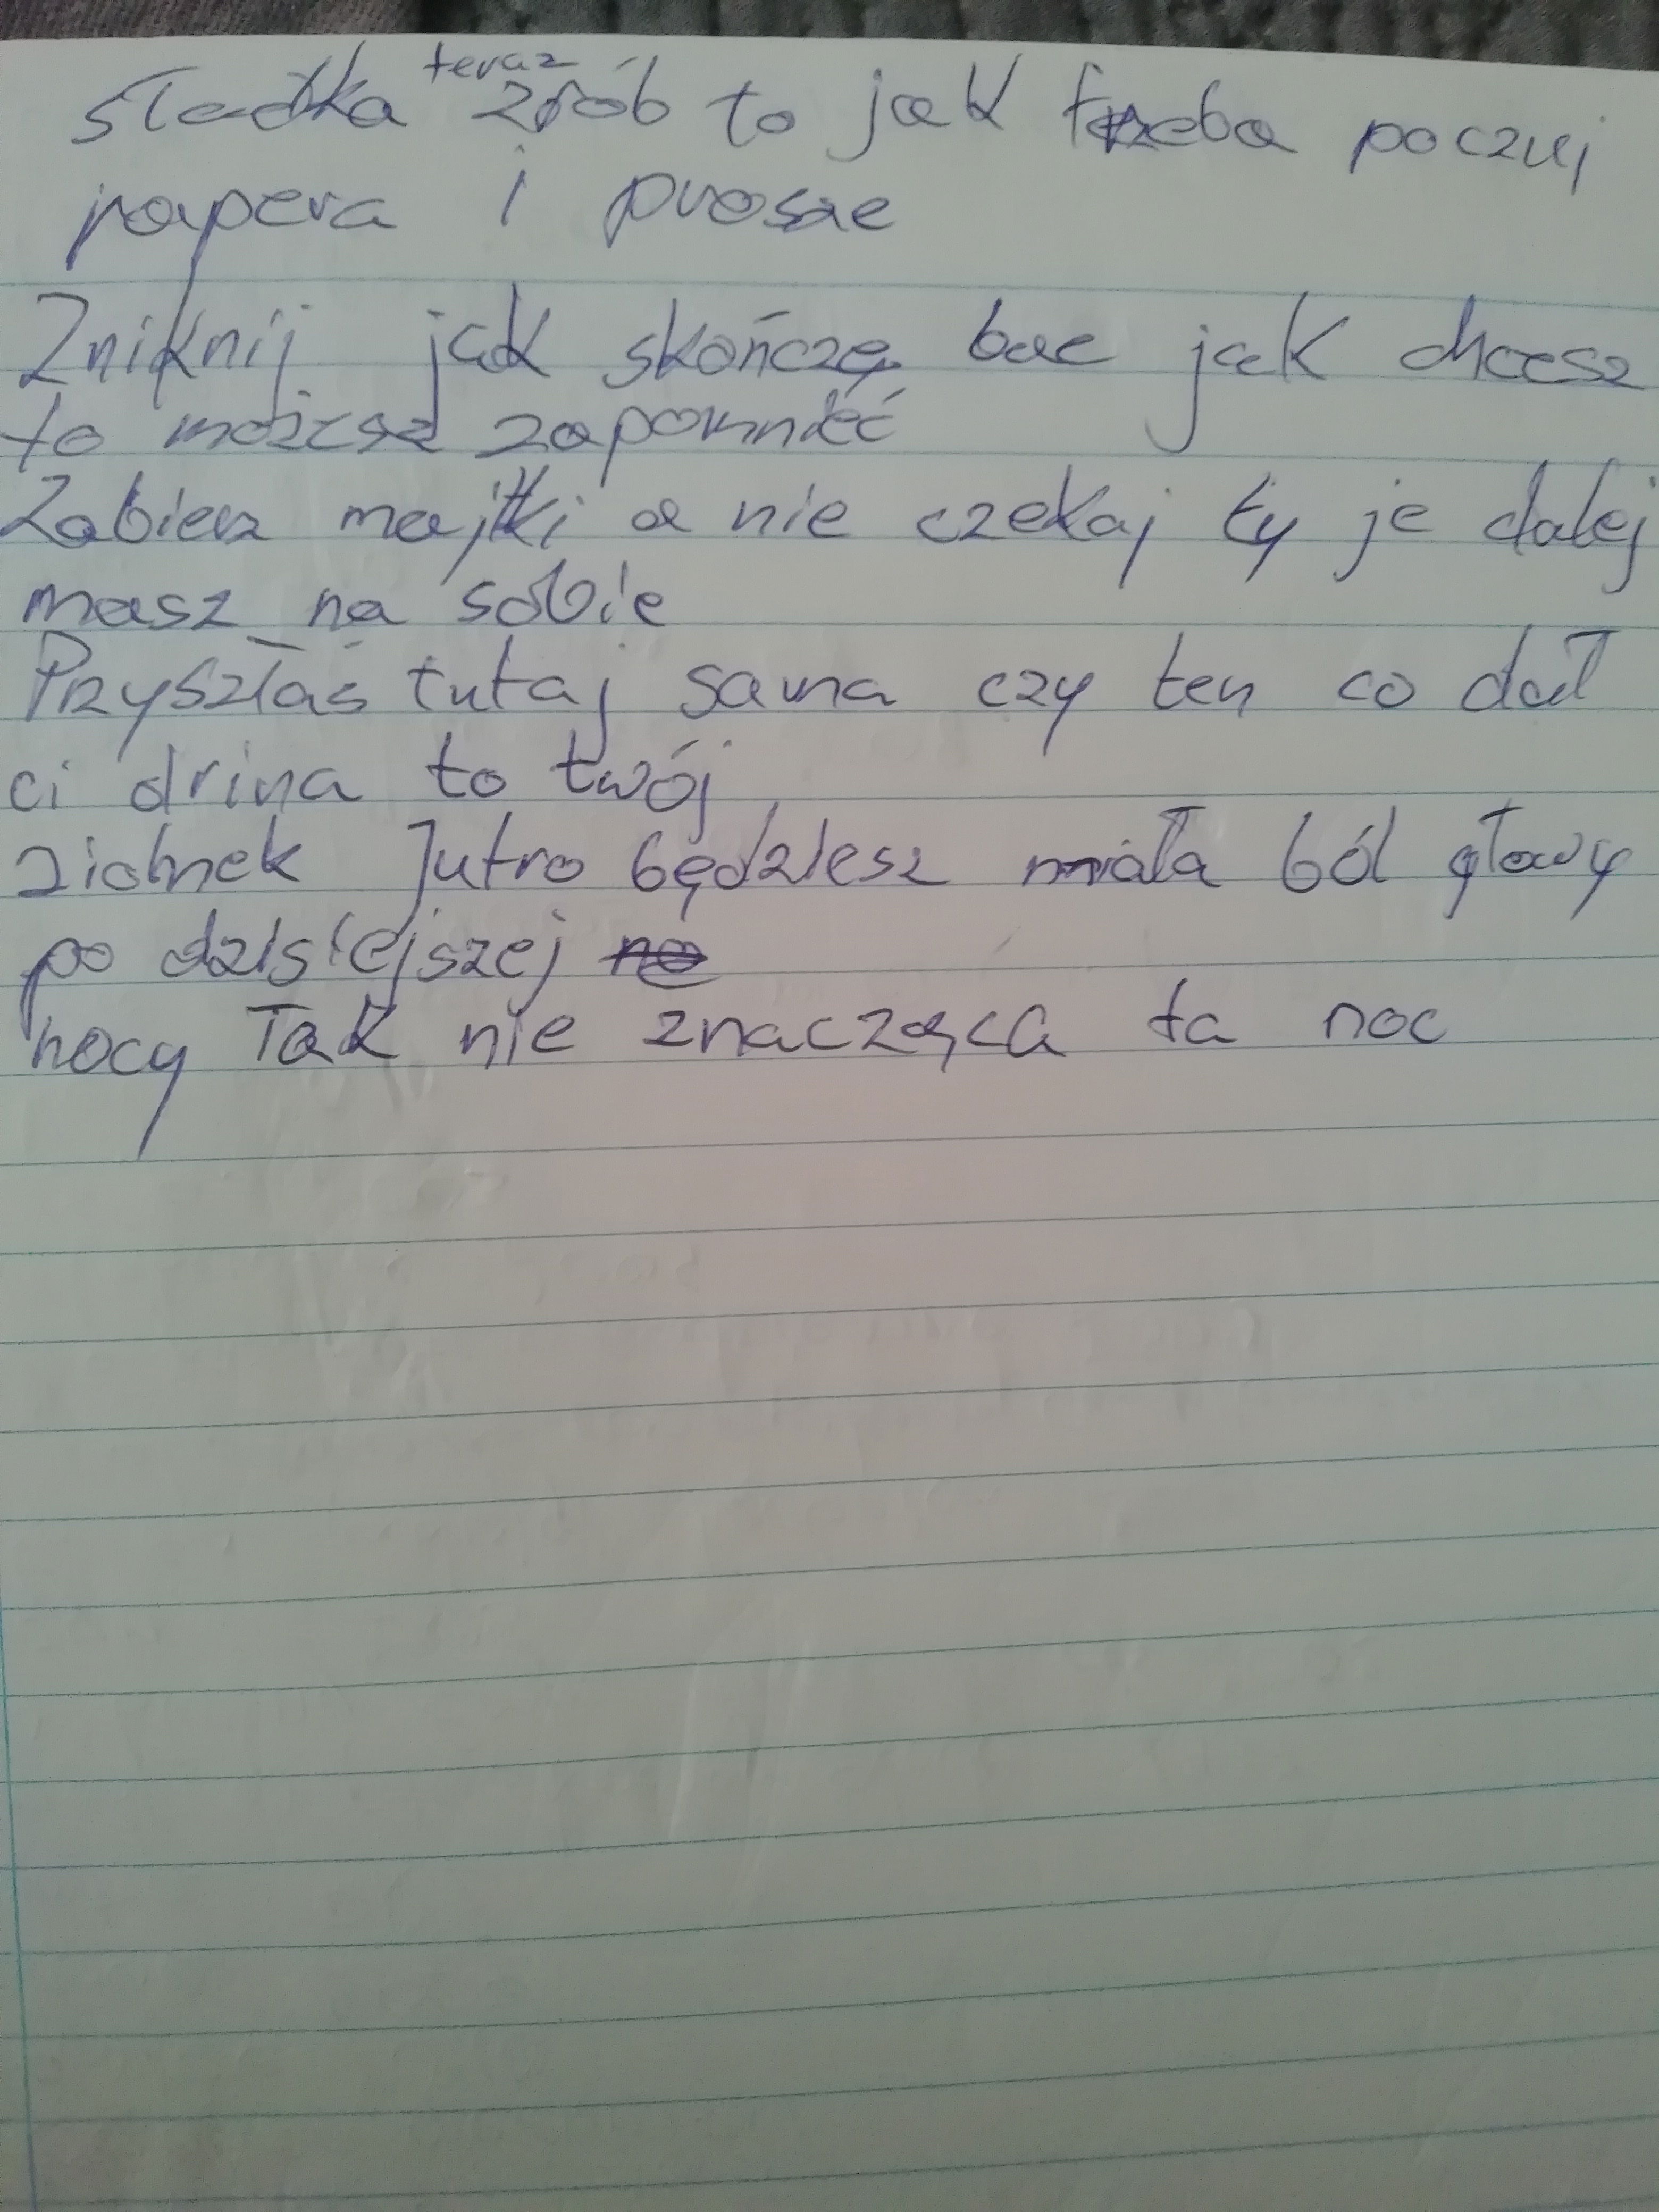 Słodka teraz zrób to jak trzeba poczuj
rapera i prosze
Zniknij jak skończę bae jak chcesz
to możesz zapomnieć
Zabierz majtki a nie czekaj ty je dalej
masz na sobie
Przyszłaś tutaj sama czy ten co dał
ci drina to twój
ziomek Jutro będziesz miała ból głowy
po dzisiejszej
nocy Tak nie znacząca ta noc